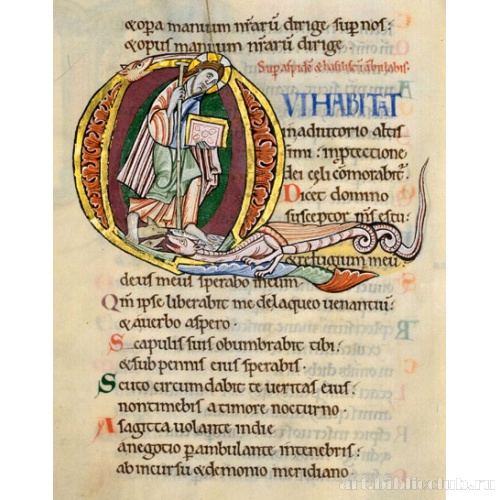 & opera manuum nr̄arū dirige sup nos:
& opus manuum nr̄arū dirige.
Sup aspidē & basiliscū ambulabis.
QUI HABITAT
in adiutorio altis
simi: in ptectione
dei celi cōmorabit.
Dicet domino
susceptor m̄s es tu:
& refugium meū
deus meus sperabo in eum
Qm̄ ipse liberabit me de laqueo uenantiū:
& a uerbo aspero.
Scapulis suis obumbrabit tibi:
& sub pennis eius sperabis.
Scuto circumdabit te ueritas eius:
non timebis a timore nocturno.
A sagitta uolante in die
a negotio pambulante in tenebris:
ab incursu & demonio meridiano.
art.biblioclub.ru